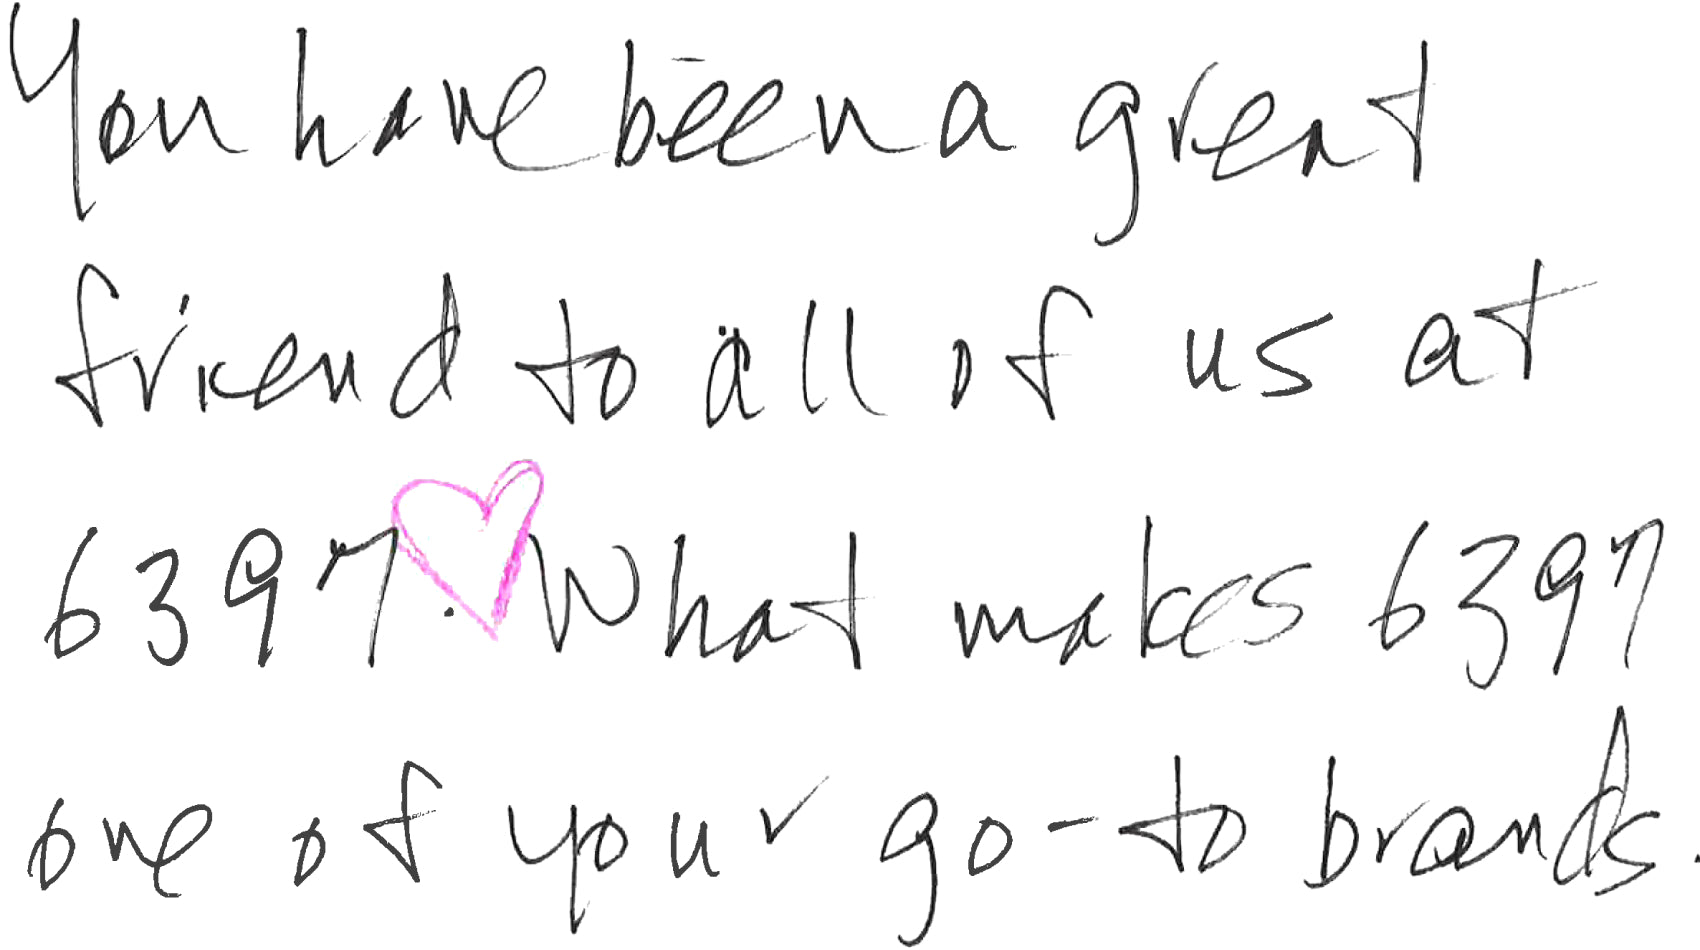 You have been a great
friend to all of us at
6397. What makes 6397
one of your go-to brands.